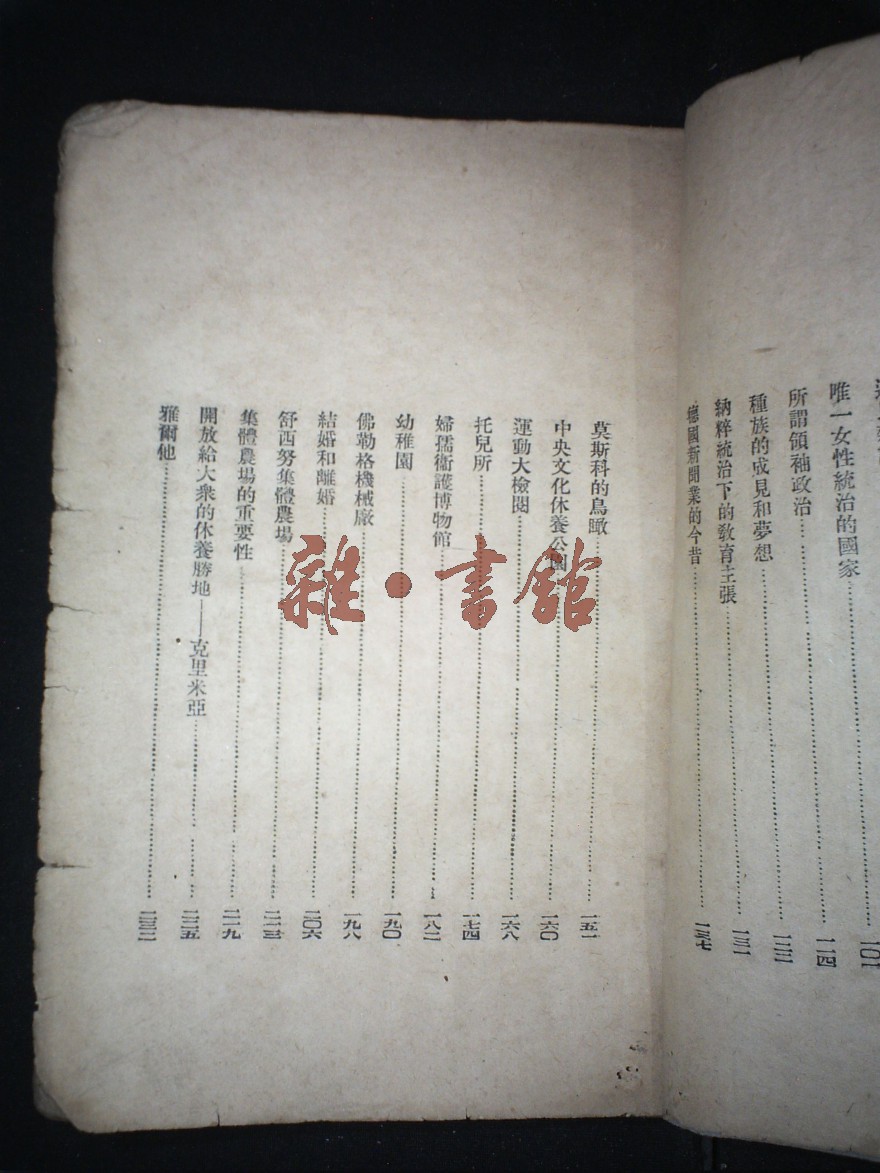 唯一女性統治的國家
所謂領袖政治 一一四
種族的成見和夢想
納粹統治下的教育主張
德國新聞業的今昔 一三七
莫斯科的鳥瞰 一五一
中央文化休養公園 一六〇
運動大檢閱 一六八
托兒所 一七四
婦孺衞護博物館 一八二
幼稚園 一九〇
佛勒格機械廠 一九八
結婚和離婚 二〇六
舒西努集體農場 二一三
集體農場的重要性 二一九
開放給大衆的休養勝地——克里米亞 二二五
雅爾他 二三二
雜·書館